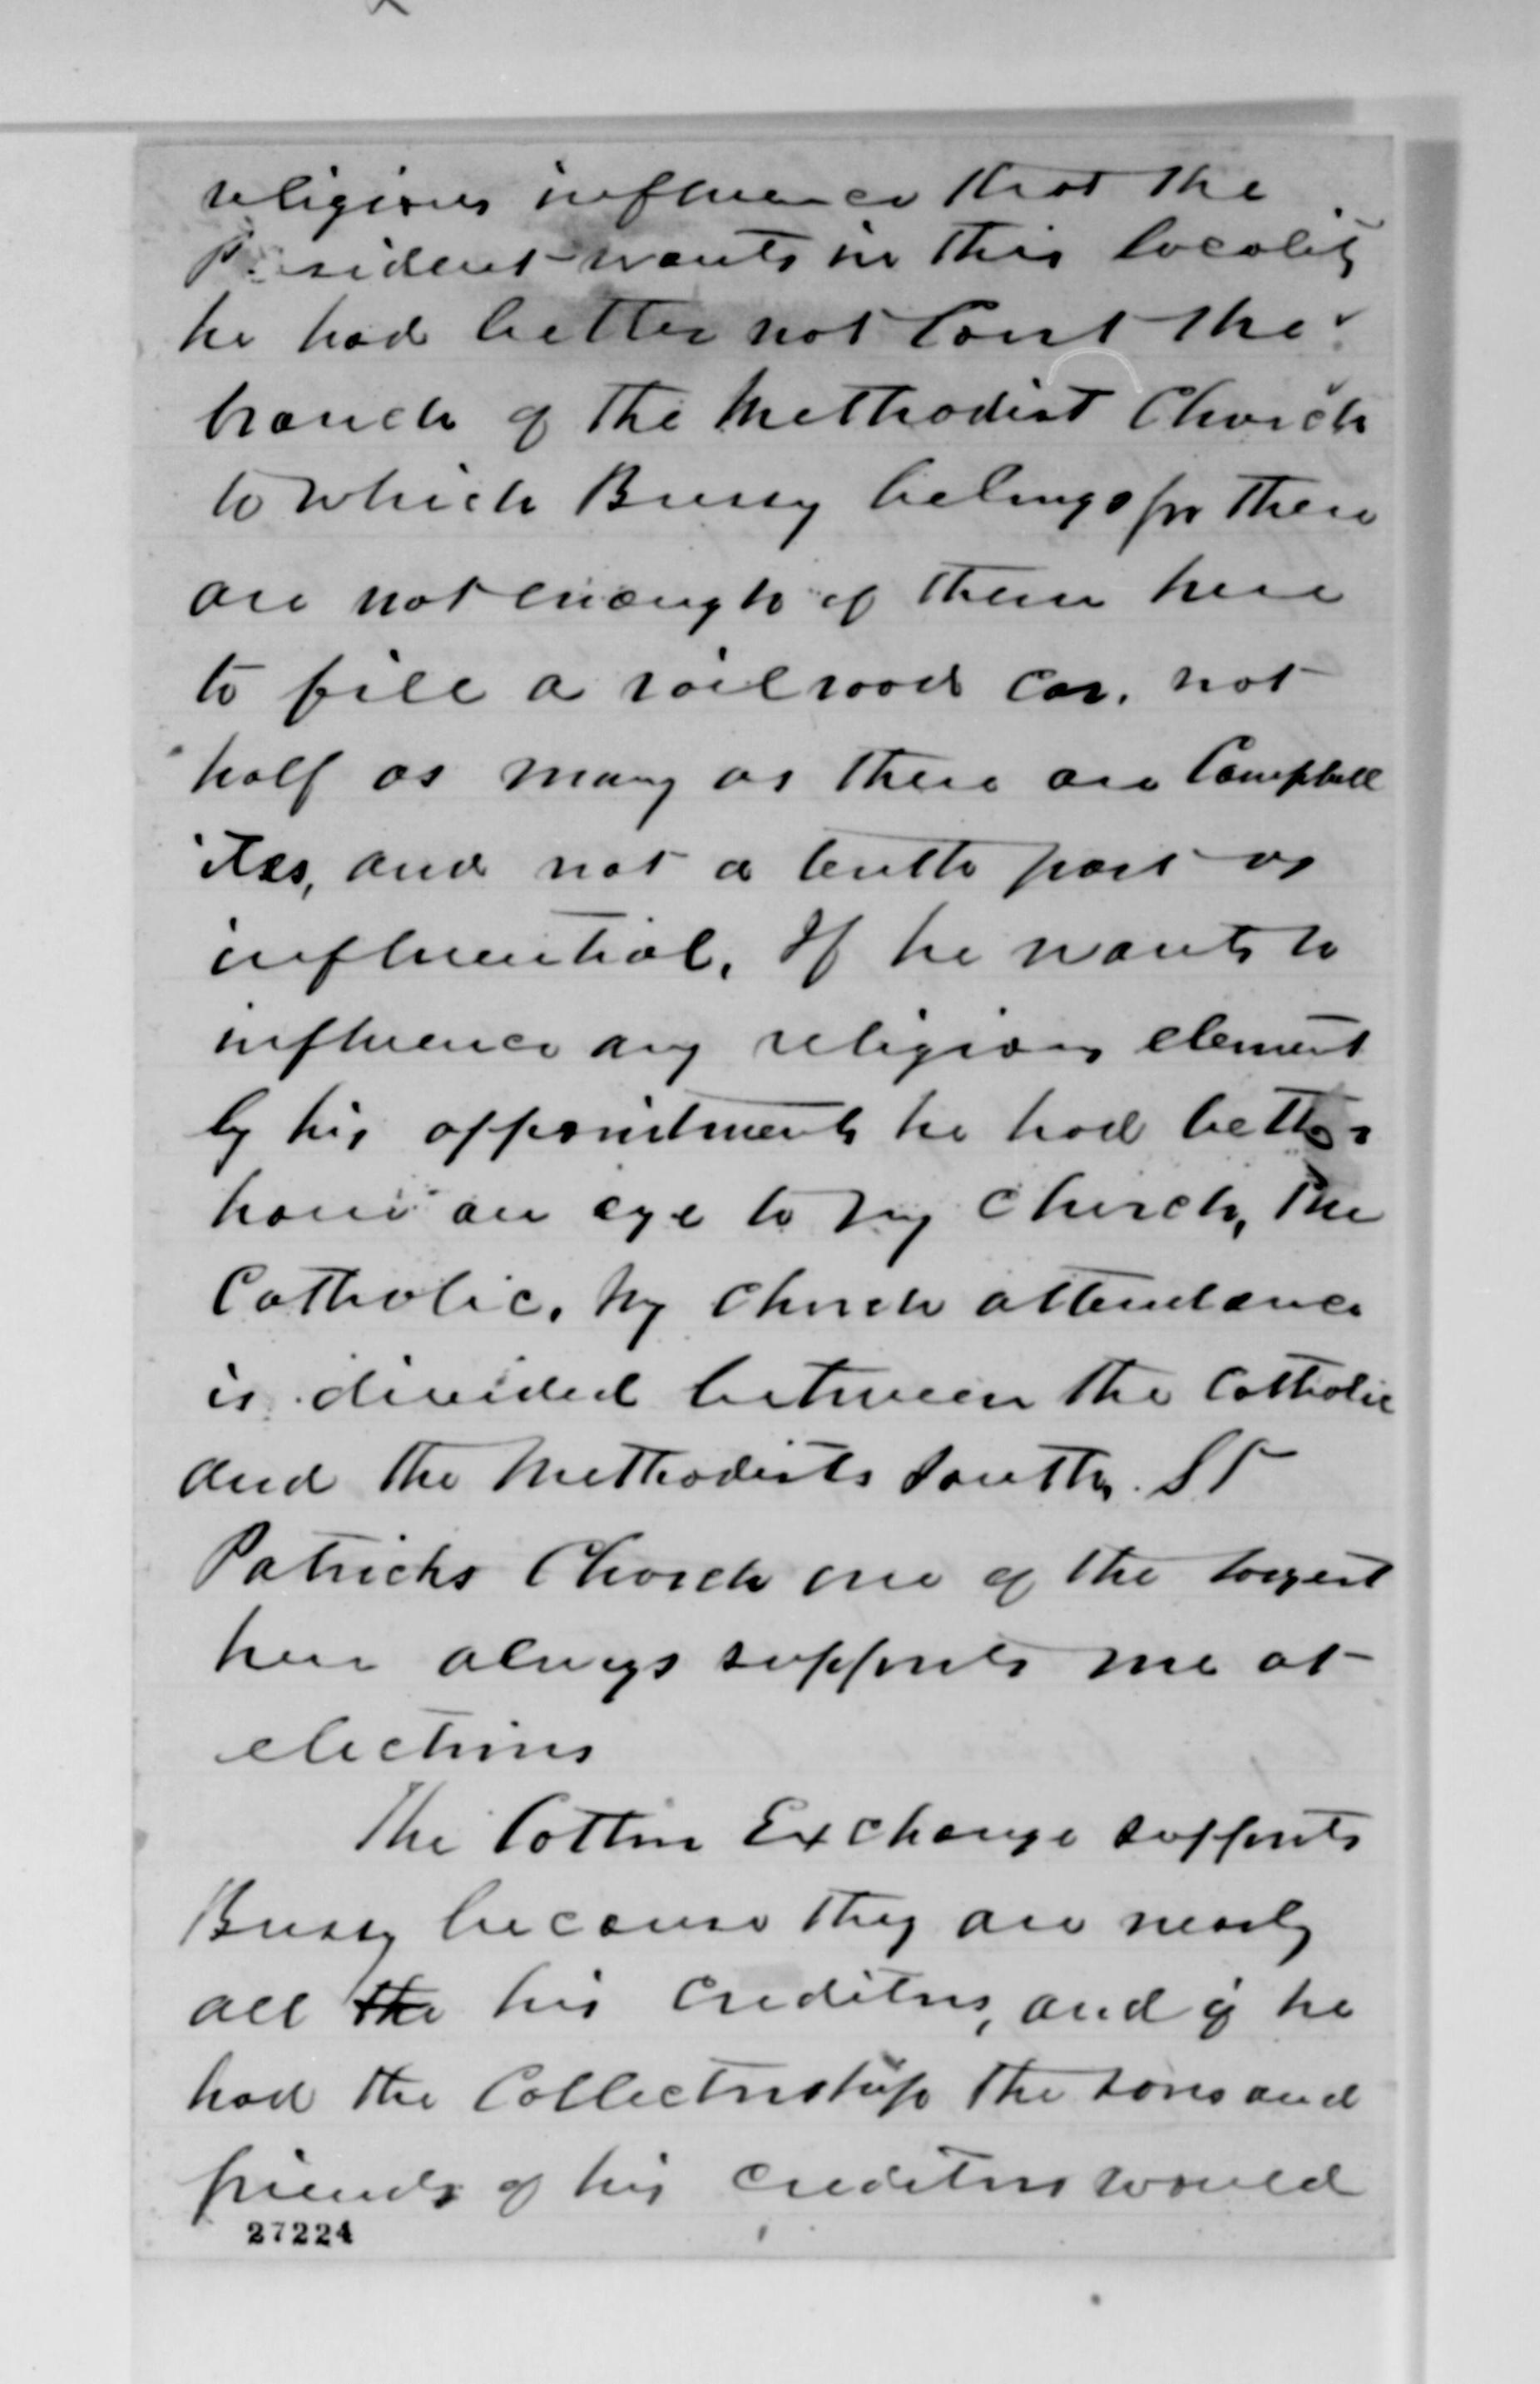 religious influence that the
President wants in this locality
he had better not Court the
branch of the Methodist Church
to which Bussey belongs for there
are not enough of them here
to fill a railroad car. not
half as many as there are Campbell
ites, and not a tenth part as
influential. If he wants to
influence any religious element
by his appointments he had better
have an eye to my church, The
Catholic. My Church attendance
is divided between the Catholic
and the Methodists South. St
Patricks Church one of the largest
here always supports me at
elections
The Cotton Exchange supports
Bussey because they are nearly
all the his creditors, and if he
had the Collectorship the sons and
friends of his creditors would
27224